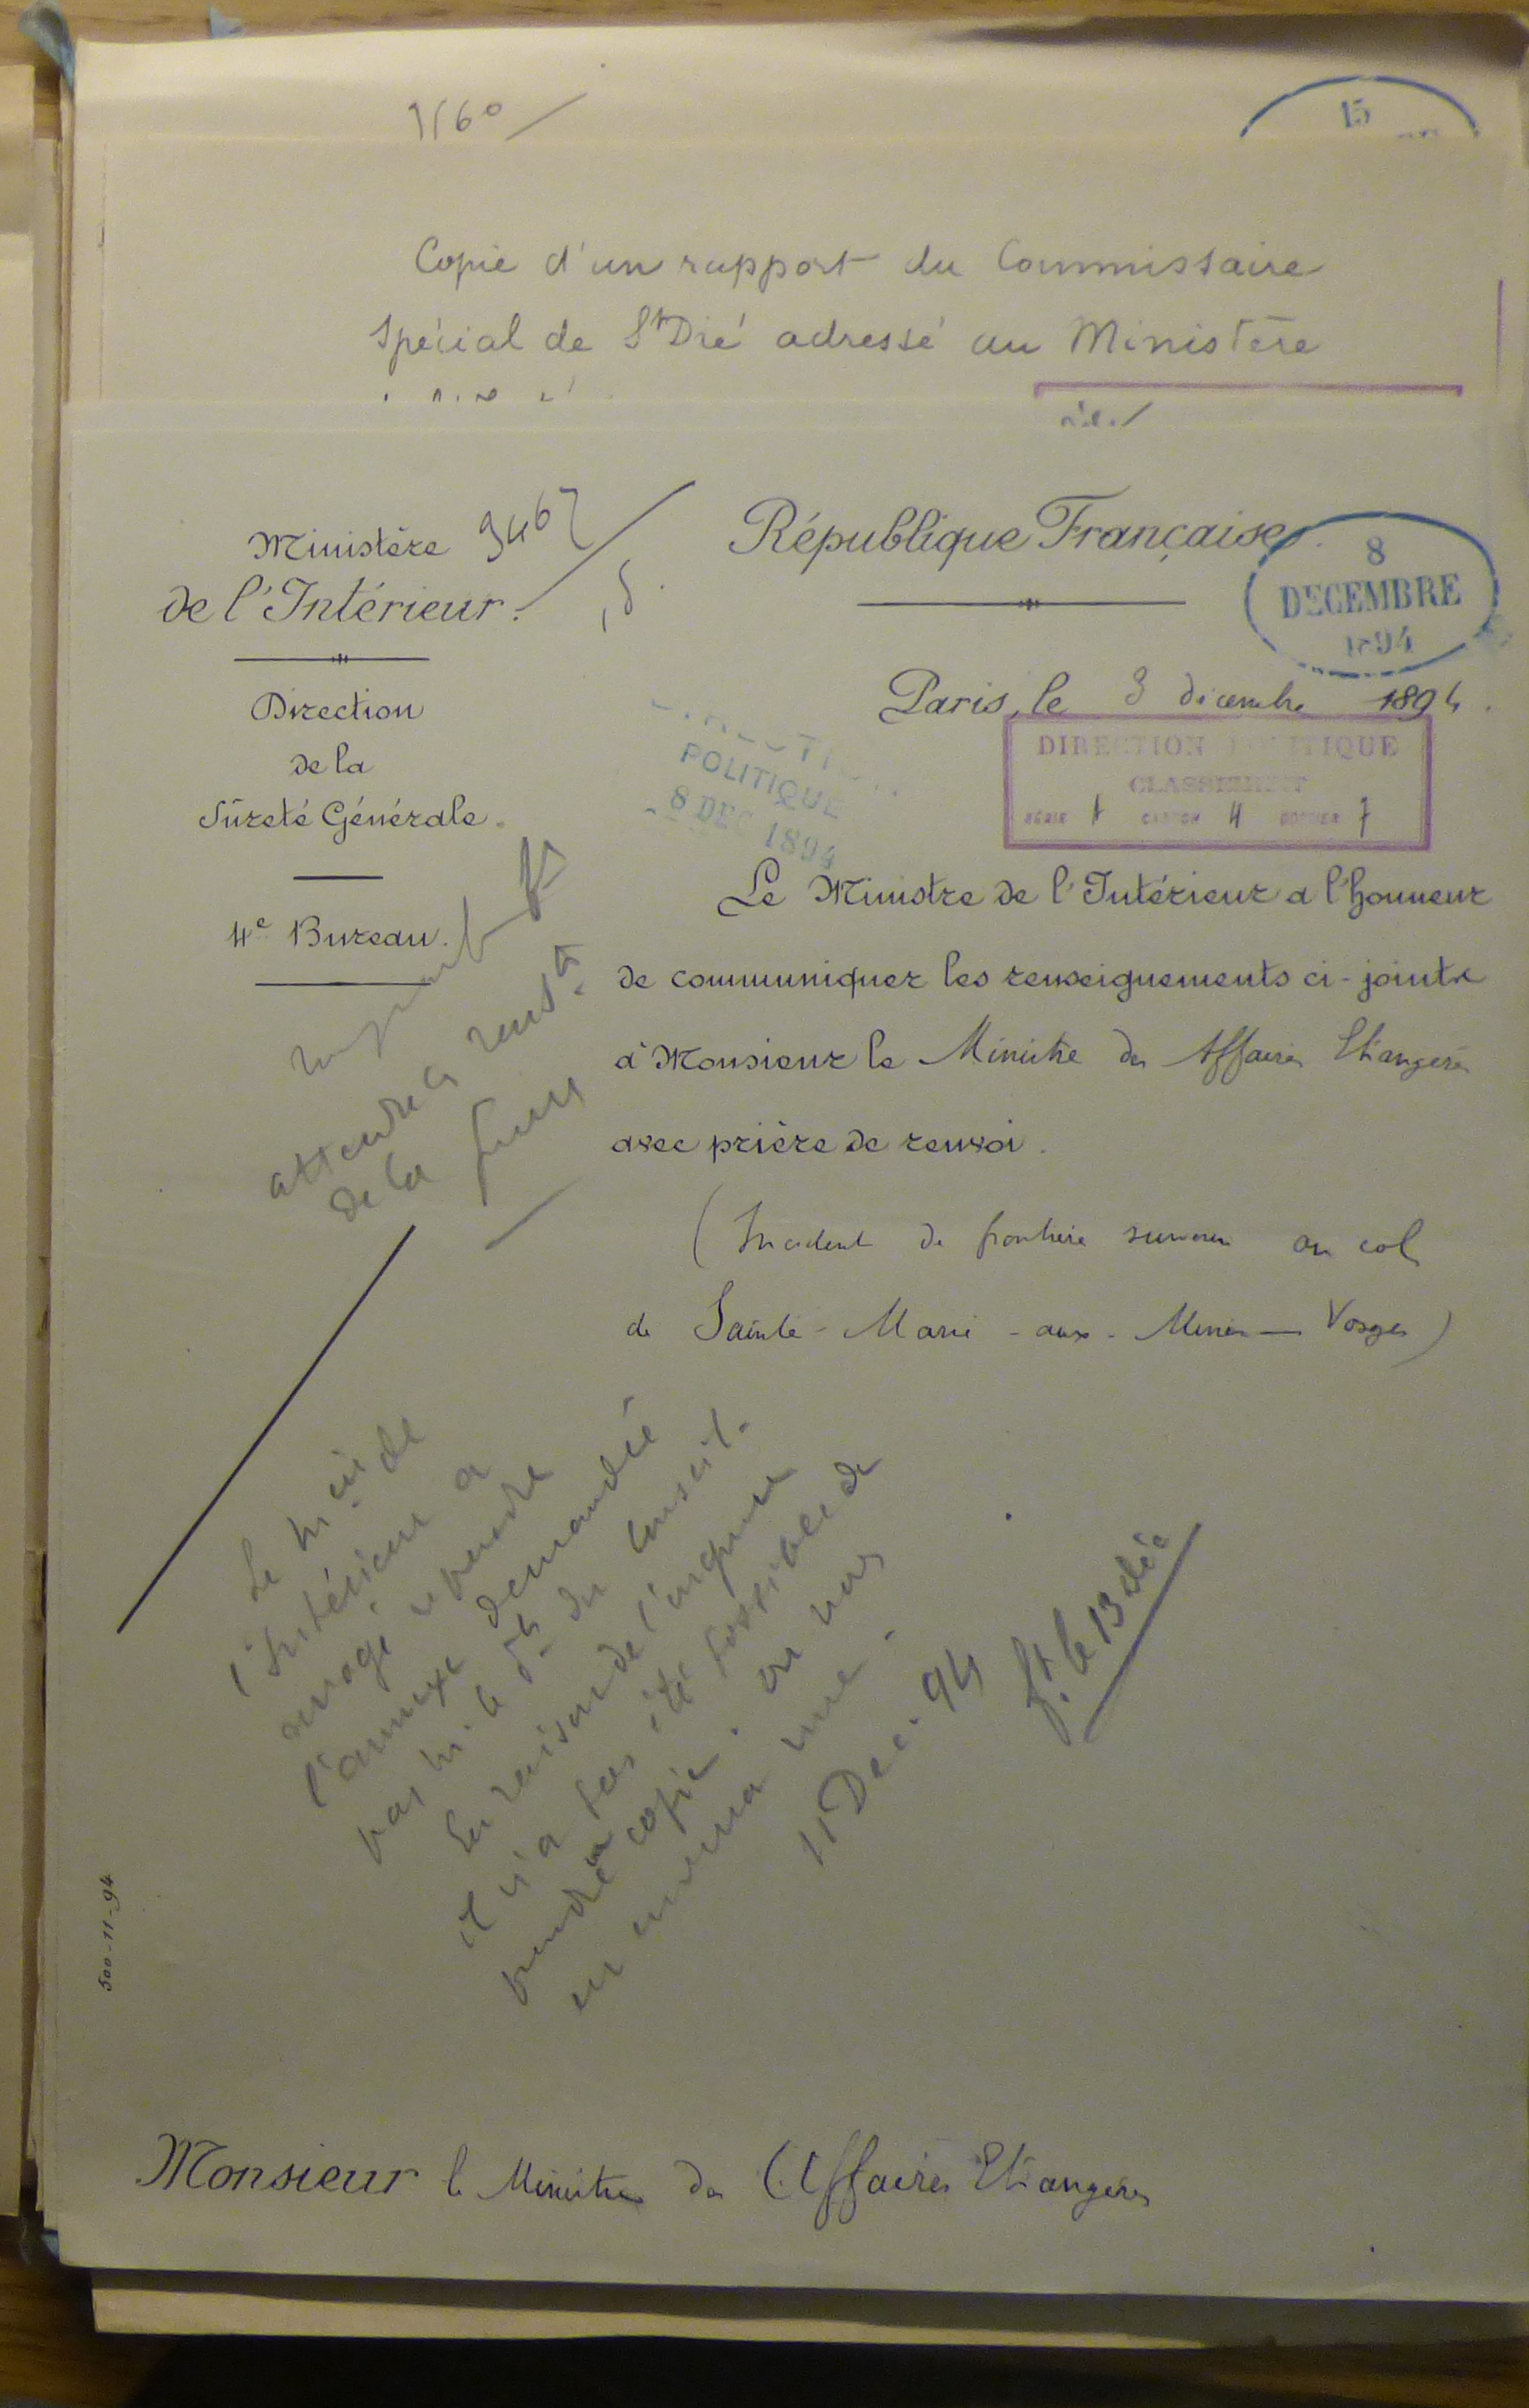 15
Copie d'un rapport du Commissaire
Spécial de St Dié adressé au Ministère
Ministère
de l'Intérieur.
Direction
de la
Sûreté Générale.
4e Bureau.
République Française.
8
DECEMBRE
1894
Paris, le 8 décembre 1894.
POLITIQUE
8 DEC 1894
DIRECTION POLITIQUE
CLASSEMENT
SERIE A CARTON 4 DOSSIER 7
Le Ministre de l'Intérieur a l'honneur
de communiquer les renseignements ci-joints
à Monsieur le Ministre des Affaires Etrangères
avec prière de renvoi.
(Incident de frontière survenu au col
de Sainte-Marie-aux-Mines — Vosges)
attendre
de la
Le de
l'Intérieur a
envoyé reprendre
l'annexe demandée
par le du Conseil.
En raison de l'urgence
il n'a pas été possible de
prendre copie. on nous
en enverra une.
11 Dec. 94
ft. le 13 déc
500-11-94
Monsieur le Ministre des Affaires Etrangères